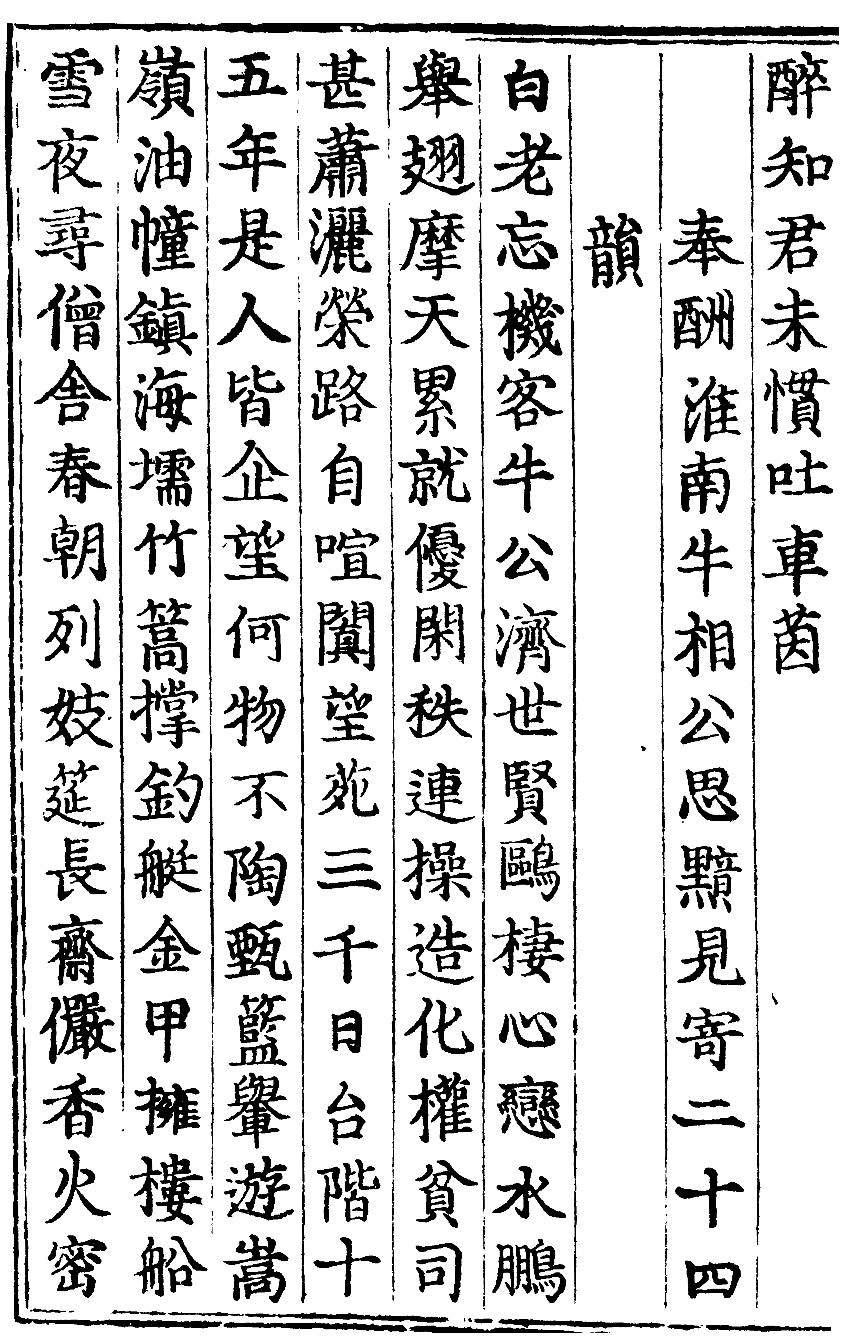 醉知君未慣吐車茵
奉酬淮南牛相公思黯見寄二十四
韻
白老忘機客牛公濟世賢鷗棲心戀水鵬
舉翅摩天累就優閑秩連操造化權貧司
甚蕭灑榮路自喧闐望苑三千日台階十
五年是人皆企望何物不陶甄籃轝遊嵩
嶺油幢鎮海壖竹篙撐釣艇金甲擁樓船
雪夜尋僧舍春朝列妓筵長齋儼香火密